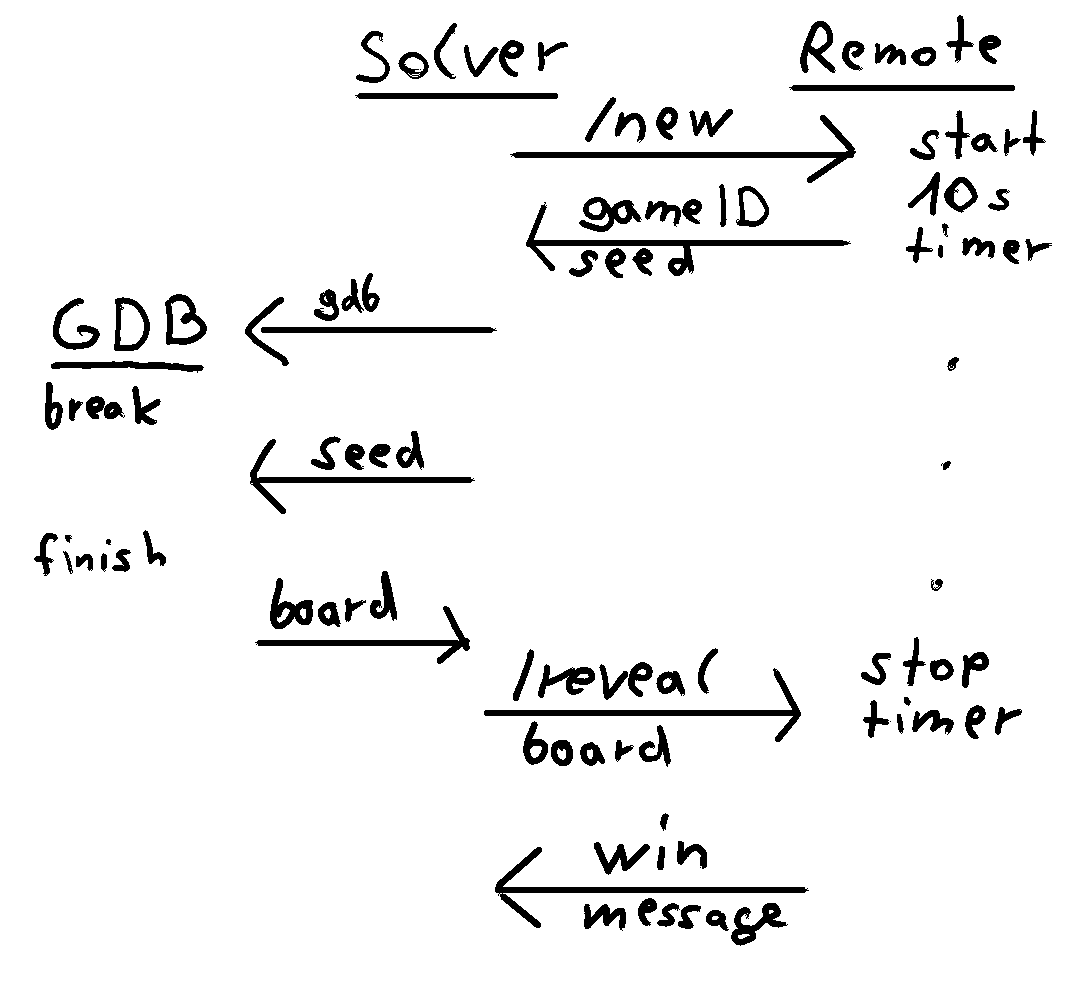 Solver
Remote
/new
start
10s
timer
gameID
seed
gdb
GDB
break
seed
finish
board
/reveal
board
stop
timer
win
message